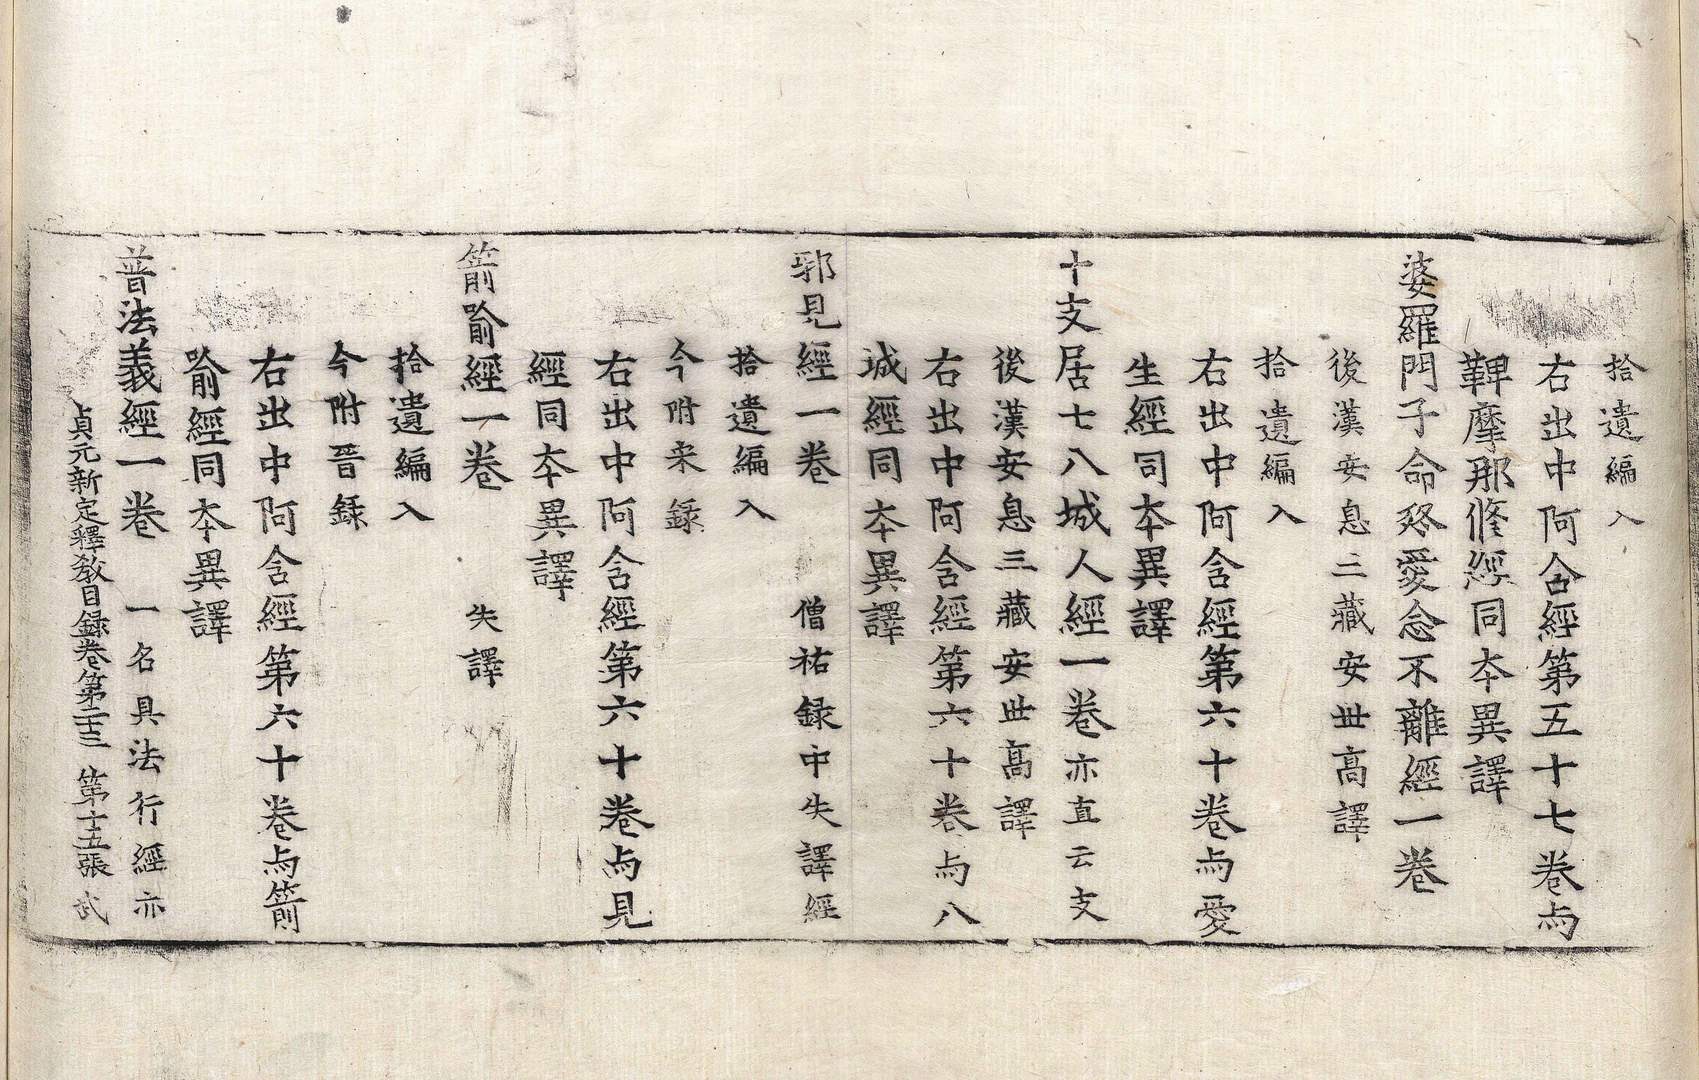 拾遺編入
右出中阿含經第五十七卷与
鞞摩那修經同夲異譯
婆羅門子命終愛念不離經一卷
後漢安息三藏安世高譯
拾遺編入
右出中阿含經第六十卷与愛
生經同夲異譯
十支居七八城人經一卷亦直云支
後漢安息三藏安世高譯
右出中阿含經第六十卷与八
城經同夲異譯
邪見經一卷 僧祐録中失譯經
拾遺編入
今附宋録
右出中阿含經第六十卷与見
經同夲異譯
箭喻經一卷 失譯
拾遺編入
今附晉録
右出中阿含經第六十卷与箭
喻經同夲異譯
普法義經一卷 一名具法行經亦
貞元新定釋教目録卷第二十三 第十五張 武